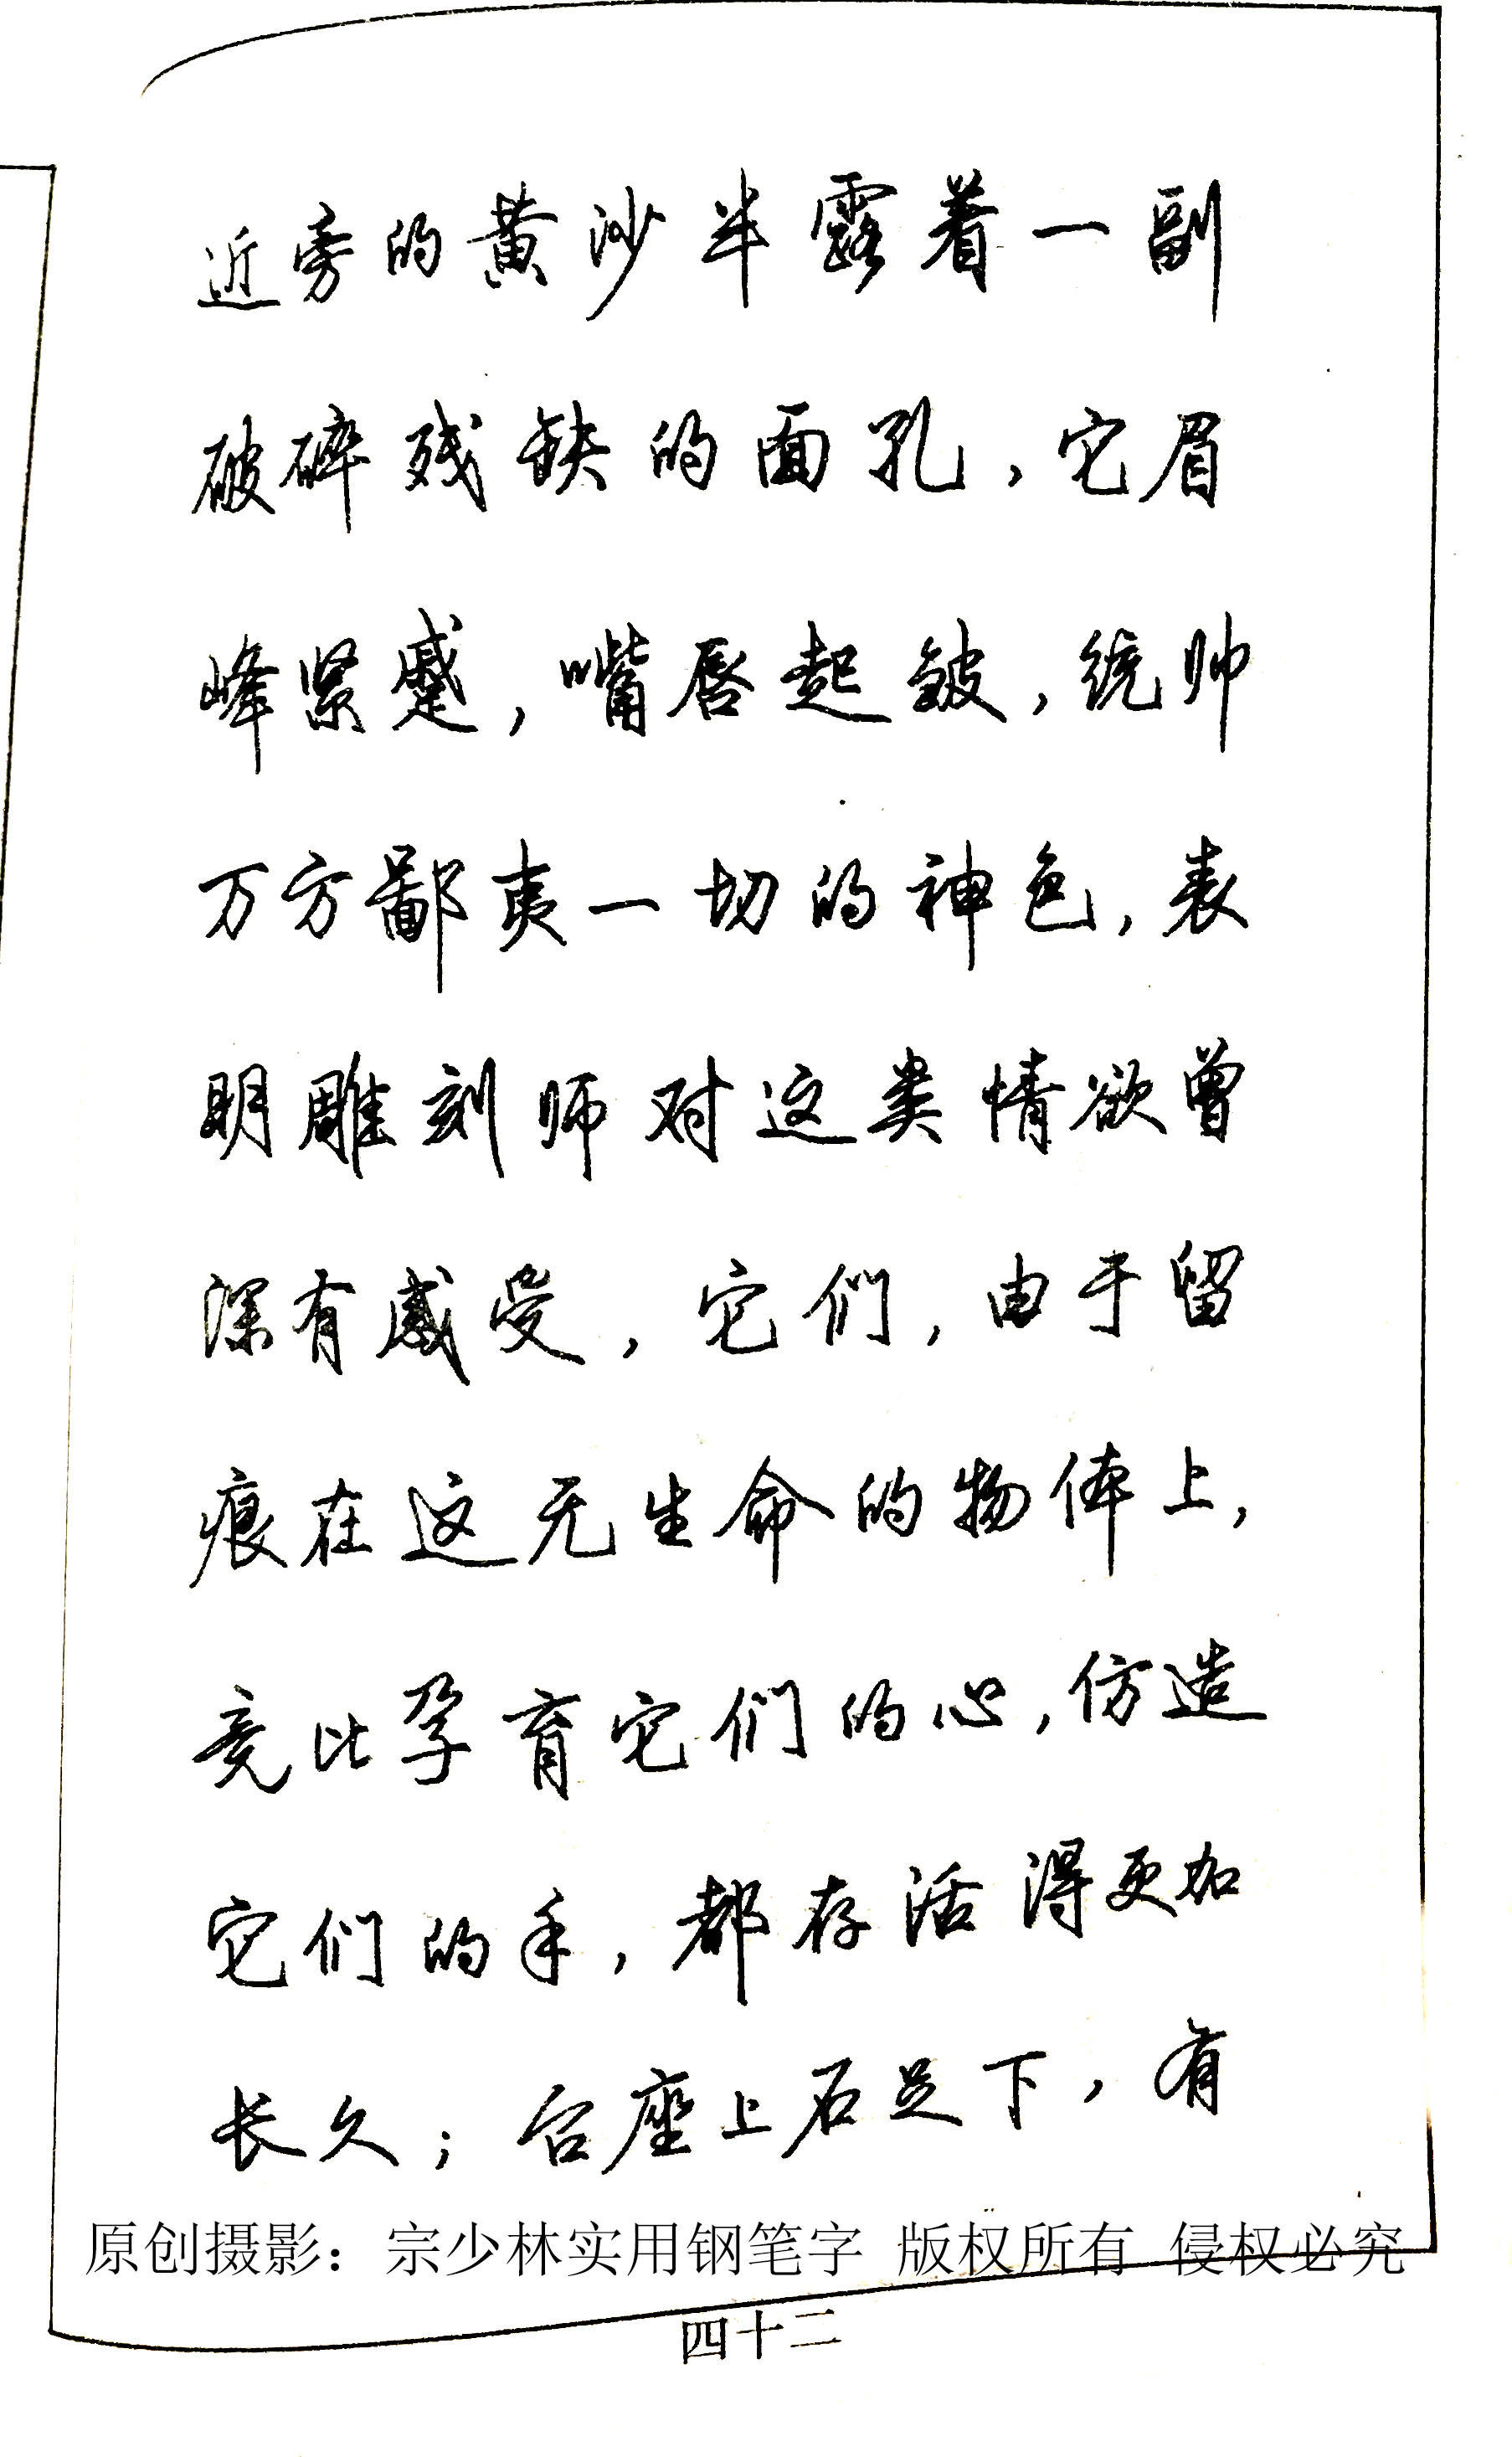 近旁的黄沙半露着一副
破碎残缺的面孔，它眉
峰紧蹙，嘴唇起皱，统帅
万方鄙夷一切的神色，表
明雕刻师对这类情欲曾
深有感受，它们，由于留
痕在这无生命的物体上，
竟比孕育它们的心，仿造
它们的手，都存活得更加
长久；台座上石足下，有
原创摄影：宗少林实用钢笔字 版权所有 侵权必究
四十二